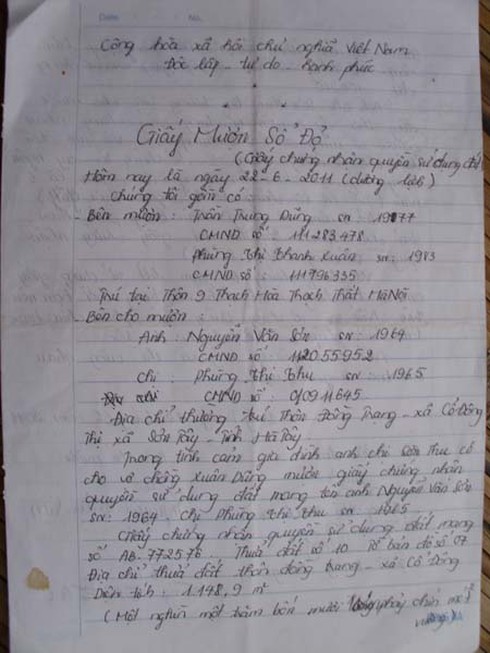 Date: No.
Công hòa xã hôi chủ nghĩa Việt Nam
Độc lập - tự do - hạnh phúc
Giấy Mượn Sổ Đỏ
(Giấy chứng nhân quyền sử dụng đất
Hôm nay là ngày 22-6-2011 (dương lịch)
Chúng tôi gồm có
- Bên mượn: Trần Trung Dũng sn 1977
CMND số: 111283478
Phùng Thị Thanh Xuân: sn: 1983
CMND số: 111796335
Trú tại Thôn 9 Thạch Hòa Thạch Thất Hà Nội
- Bên cho mượn:
Anh: Nguyễn Văn Sơn sn: 1964
CMND số 112055952
Chị: Phùng Thị Thu sn: 1965
CMND số: 010911645
Địa chỉ thường trú Thôn Đồng Trạng - xã Cổ Đông
Thị xã Sơn Tây - Tỉnh Hà Tây
Trong tình cảm gia đình anh chị Sơn Thu có
cho vợ chồng Xuân Dũng mượn giấy chứng nhân
quyền sử dụng đất mang tên anh Nguyễn Văn Sơn
sn: 1964. Chị Phùng Thị Thu sn 1965
Giấy chứng nhân quyền sử dụng đất mang
số AB-772576. Thửa đất số 10 Tờ bản đồ số 07
Địa chỉ thửa đất thôn đồng trạng - xã Cổ Đông
Diện tích: 1.148,9 m²
(Một nghìn một trăm bốn mươi phẩy chín mét
vuông)